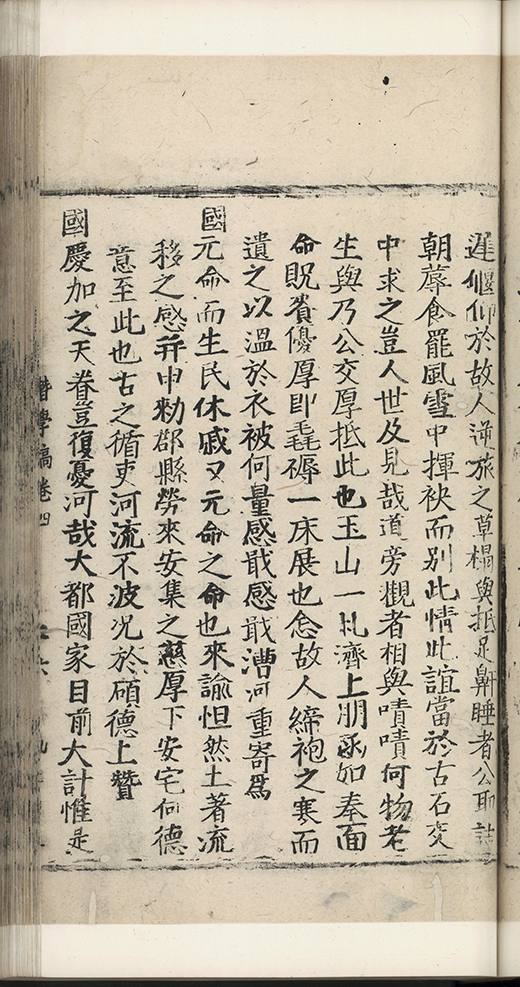 遲偃仰於故人逆旅之草榻與抵足鼾睡者公耶詰
朝蓐食罷風雪中揮袂而別此情此誼當於古石交
中求之豈人世及見哉道旁觀者相與嘖嘖何物老
生與乃公交厚抵此也玉山一札濟上朋函如奉面
命貺賁優厚即毳磚一床展也念故人綈袍之寒而
遺之以溫於衣被何量感戢感戢漕河重寄爲
國元命而生民休戚又元命之命也來諭怛然土著流
移之感并申勑郡縣勞來安集之慈厚下安宅何德
意至此也古之循吏河流不波况於碩德上贊
國慶加之天眷豈復憂河哉大都國家目前大計惟是
學稿卷四